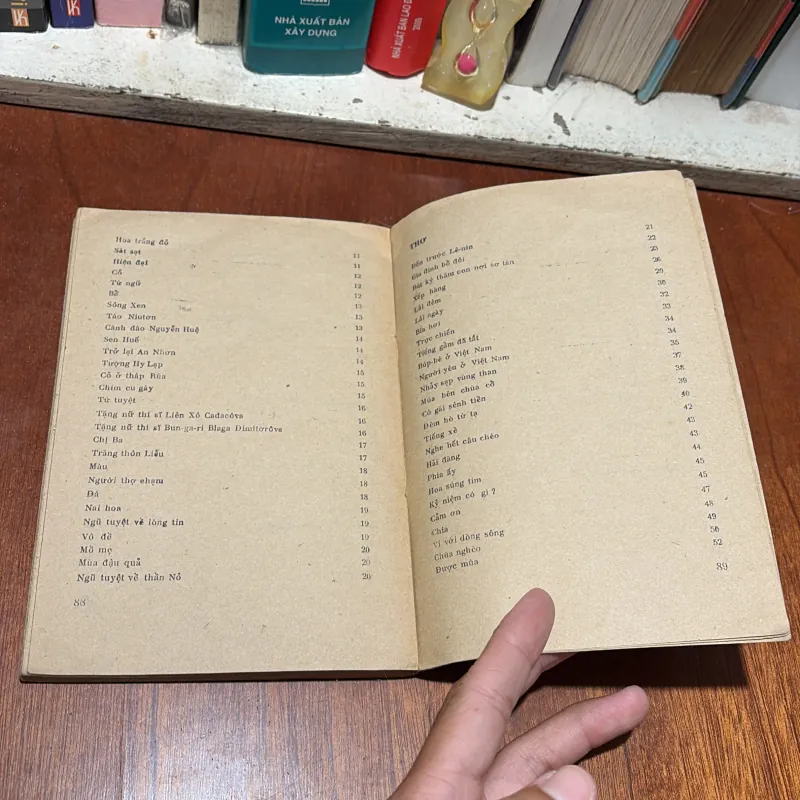 NHÀ XUẤT BẢN
XÂY DỰNG
NHÀ XUẤT BẢN LAO Đ
Hoa trắng đỏ
Sát sạt 11
Hiện đại 11
Cỏ 12
Từ ngữ 12
Bể 12
Sông Xen 13
Táo Niutơn 13
Cành đào Nguyễn Huệ 13
Sen Huế 14
Trở lại An Nhơn 14
Tượng Hy Lạp 14
Cỏ ở tháp Rùa 15
Chim cu gáy 15
Tứ tuyệt 15
Tặng nữ thi sĩ Liên Xô Cadacôva 16
Tặng nữ thi sĩ Bun-ga-ri Blaga Dimitơrôva 16
Chị Ba 17
Trăng thôn Liễu 17
Màu 18
Người thợ chạm 18
Đá 18
Nai hoa 19
Ngũ tuyệt về lòng tin 19
Vô đề 19
Mồ mẹ 20
Mùa đậu quả 20
Ngũ tuyệt về thần Nỏ 20
88
THƠ
Đến trước Lê-nin 21
Gia đình bộ đội 22
Bút ký thăm con nơi sơ tán 23
Xếp hàng 26
Lái đêm 29
Lái ngày 30
Bia hơi 32
Trực chiến 33
Tiếng gầm đã tắt 34
Búp-bê ở Việt Nam 34
Người yêu ở Việt Nam 35
Nhảy sạp vùng than 37
Múa bên chùa cổ 38
Cô gái sênh tiền 39
Đêm hò tứ tạ 40
Tiếng xè 42
Nghe hết câu chèo 43
Hải đăng 43
Phía ấy 44
Hoa súng tím 45
Kỷ niệm có gì ? 45
Cảm ơn 47
Chia 48
Ví với dòng sông 49
Chùa nghèo 50
Được mùa 52
89